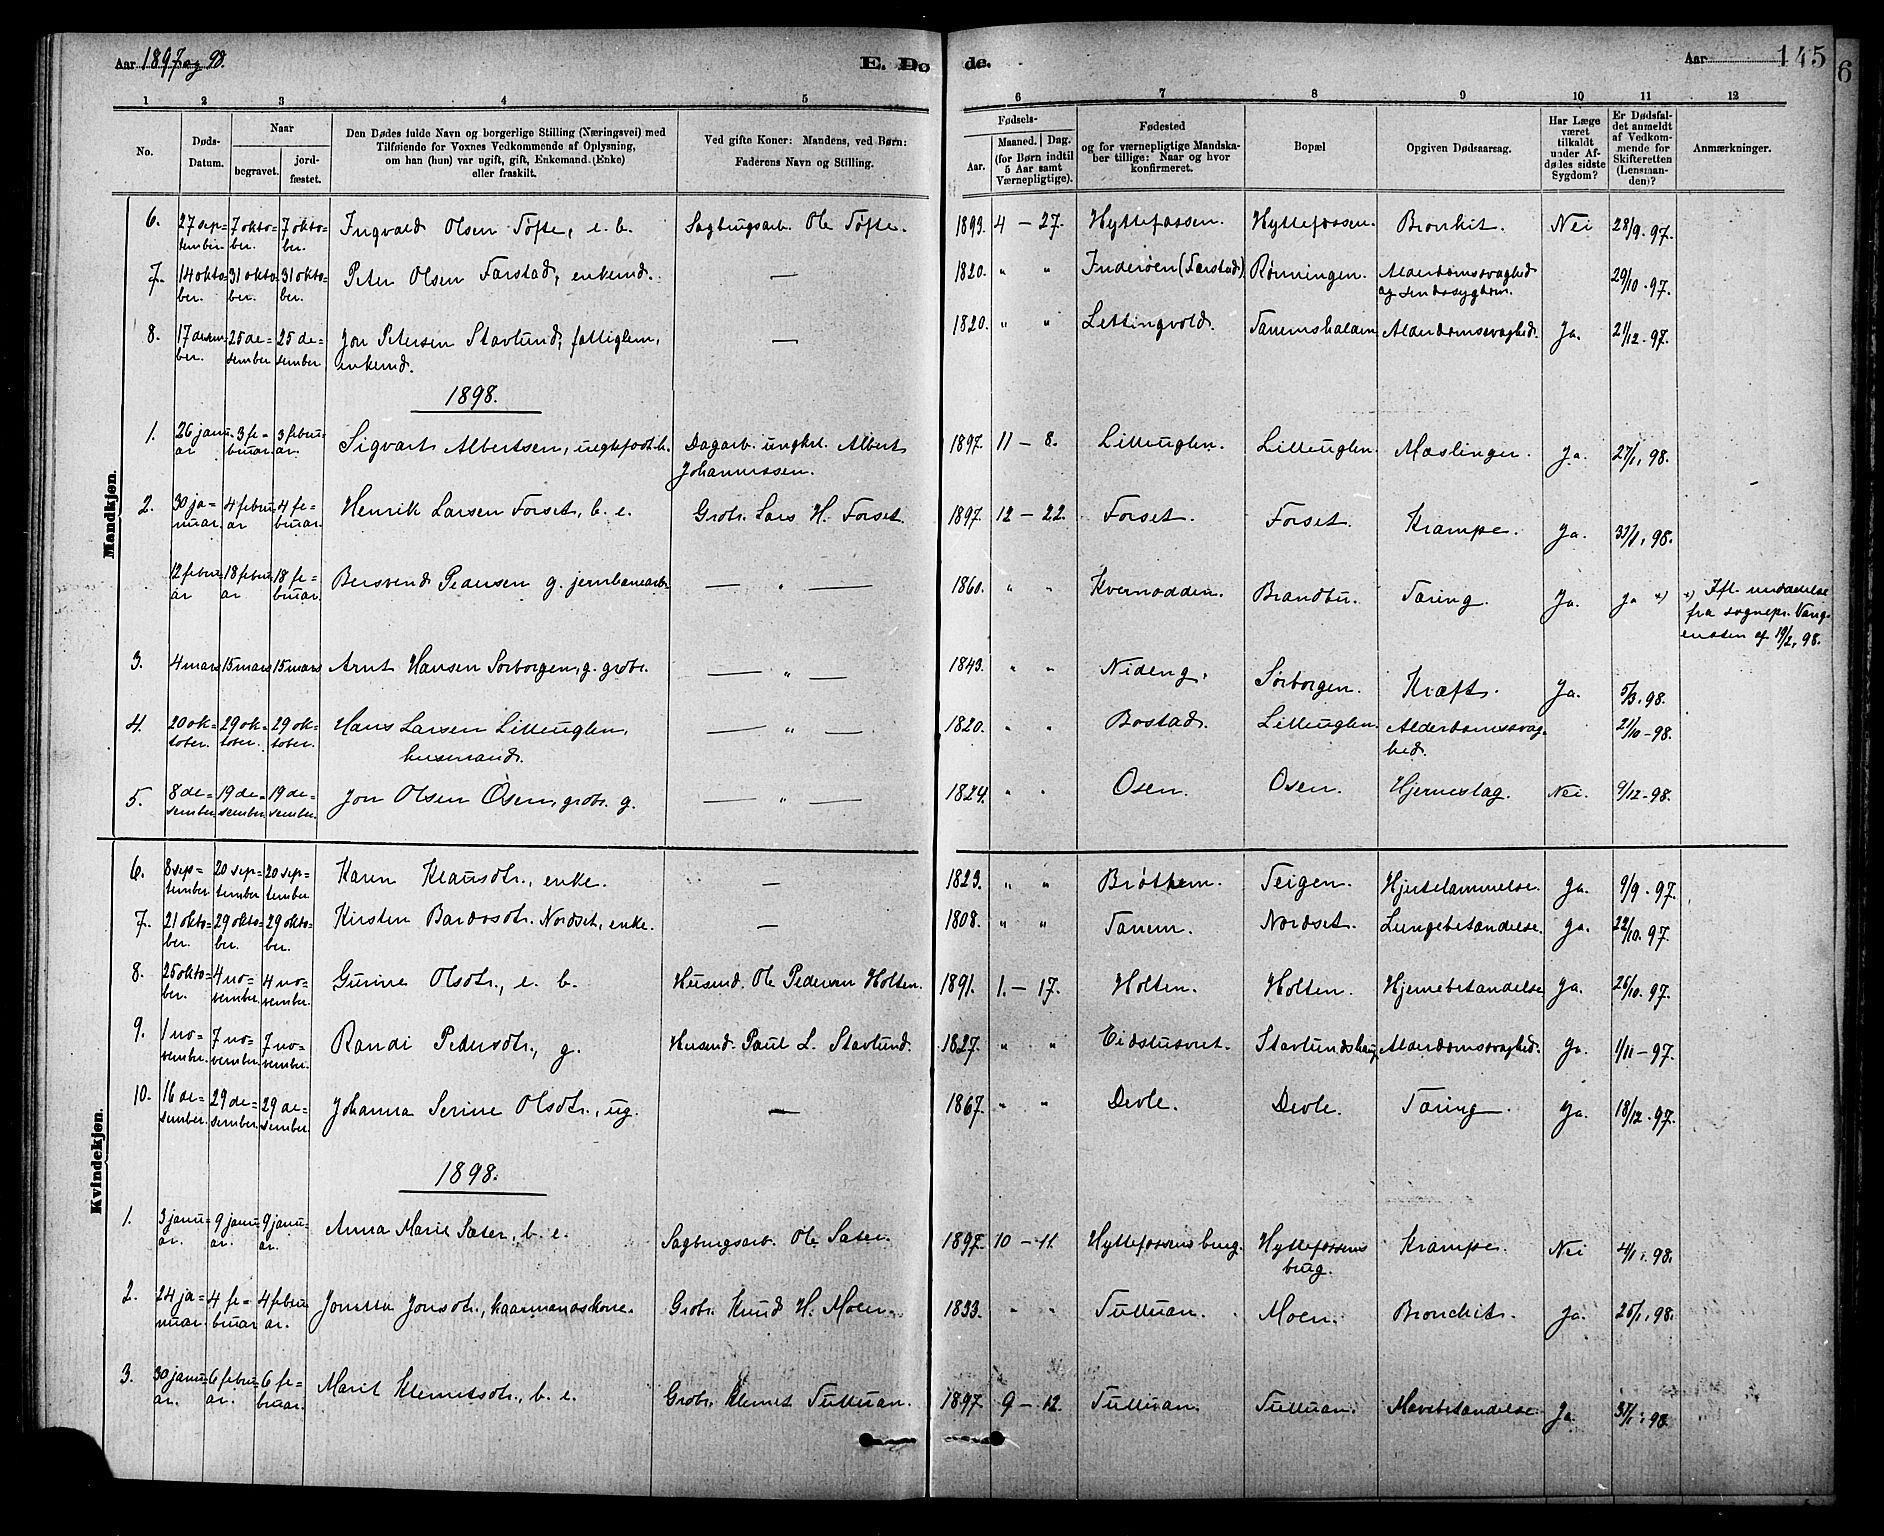 Aar 1897 og 98.
E. Dø
de.
Aar
145
6
1 2 3 4 5 6 7 8 9 10 11 12
No.
Døds-
Datum.
Naar
begravet.
jord-
fæstet.
Den Dødes fulde Navn og borgerlige Stilling (Næringsvei) med
Tilføiende for Voxnes Vedkommende af Oplysning,
om han (hun) var ugift, gift, Enkemand (Enke)
eller fraskilt.
Ved gifte Koner: Mandens, ved Børn:
Faderens Navn og Stilling.
Fødsels-
Aar.
Maaned. Dag.
(for Børn indtil
5 Aar samt
Værnepligtige).
Fødested
og for værnepligtige Mandska-
ber tillige: Naar og hvor
konfirmeret.
Bopæl
Opgiven Dødsaarsag.
Har Læge
været
tilkaldt
under Af-
dødes sidste
Sygdom?
Er Dødsfal-
det anmeldt
af Vedkom-
mende for
Skifteretten
(Lensman-
den)?
Anmærkninger.
Mandkjøn.
6. 27 september 7 oktober 7 oktober Ingvald Olsen Tøfte, e. b. Sagbrugsarb. Ole Tøfte. 1893. 4 — 27. Hyttefossen. Hyttefossen. Bronkit. Nei 28/9. 97.
7. 14 oktober. 31 oktober. 31 oktober. Peter Olsen Farstad, enkemd. — 1820. " " Inderøen (Farstad) Rønningen. Alderdomssvaghed 29/10. 97.
8. 17 desember. 25 desember 25 desember Jon Petersen Stavlund, fattiglem, — 1820. " " Lettingvold. Tanemshalden Alderdomssvaghed. Ja. 21/12. 97.
enkemd.
1898.
1. 26 januar 3 februar. 3 februar. Sigvart Albertsen, uegtefødt b. Dagarb. ungkrl. Albert 1897. 11 — 8. Lilleuglen. Lilleuglen. Mæslinger. Ja. 27/1. 98.
Johannessen.
2. 30 januar. 4 februar 4 februar. Henrik Larsen Forset, b. e. Grdbr. Lars H. Forset. 1897. 12 — 22. Forset. Forset. Krampe. Ja. 31/1. 98.
12 februar 18 februar 18 februar. Bersvend Pedersen g. jernbanearb. — " — 1860. " " Kvernodden. Brandbu. Tæring. Ja. ja *) *) Ifl. meddelelse
fra sognepr. Vang-
ensten af 19/2. 98.
3. 4 mars 15 mars 15 mars Arnt Hansen Sørborgen, g. grdbr. — " — 1843. " " Nideng. Sørborgen. Kræft. Ja. 5/3. 98.
4. 20 oktober. 29 oktober. 29 oktober. Hans Larsen Lilleuglen, — " — 1820. " " Bostad. Lilleuglen. Alderdomssvag- 21/10 - 98.
husmand. hed.
5. 8 desember 19 desember 19 desember. Jon Olsen Osen, grdbr. g. — " — 1824. " " Osen. Osen. Hjerneslag. Nei. 9/12 - 98.
Kvindekjøn.
6. 8 september 20 september 20 september Karen Klausdtr., enke. — 1823. " " Brøttem. Teigen. Hjertelammelse. Ja. 9/9. 97.
7. 21 oktober. 29 oktober. 29 oktober. Kirsten Bardosdtr. Nordset, enke. — 1808. " " Tanem. Nordset. Lungebetændelse. Ja. 22/10. 97.
8. 25 oktober. 4 november 4 november. Gurine Olsdtr., e. b. Husmd. Ole Pedersen Holten. 1891. 1. — 17. Holten. Holten. Hjernebetændelse Ja. 26/10. 97.
9. 1 november. 7 november 7 november. Randi Pedersdtr., g. Husmd. Paul L. Stavlund. 1827. " " Eidstusvet. Stavlundshaug Alderdomssvaghed. Ja. 1/11 - 97.
10. 16 desember. 29 desember. 29 desember. Johanna Serine Olsdtr., ug. — 1867. " " Devle. Devle. Tæring. Ja. 18/12 - 97.
1898.
1. 3 januar. 9 januar. 9 januar. Anna Marie Sæter, b. e. Sagbrugsarb. Ole Sæter. 1897. 10 — 11. Hyttefossens brug. Hyttefossens Krampe. Nei 4/1. 98.
brug.
2. 24 januar. 4 februar 4 februar. Jonetta Jonsdtr., kaarmandskone. Grdbr. Knud H. Moen. 1833. " " Tulluan. Moen. Bronchit. Ja. 26/1. 98.
3. 30 januar. 6 februar. 6 februar. Marit Klemetsdtr., b. e. Grdbr. Klemet Tulluan. 1897. 9 — 12. Tulluan. Tulluan. Mavebetændelse. Ja. 31/1. 98.